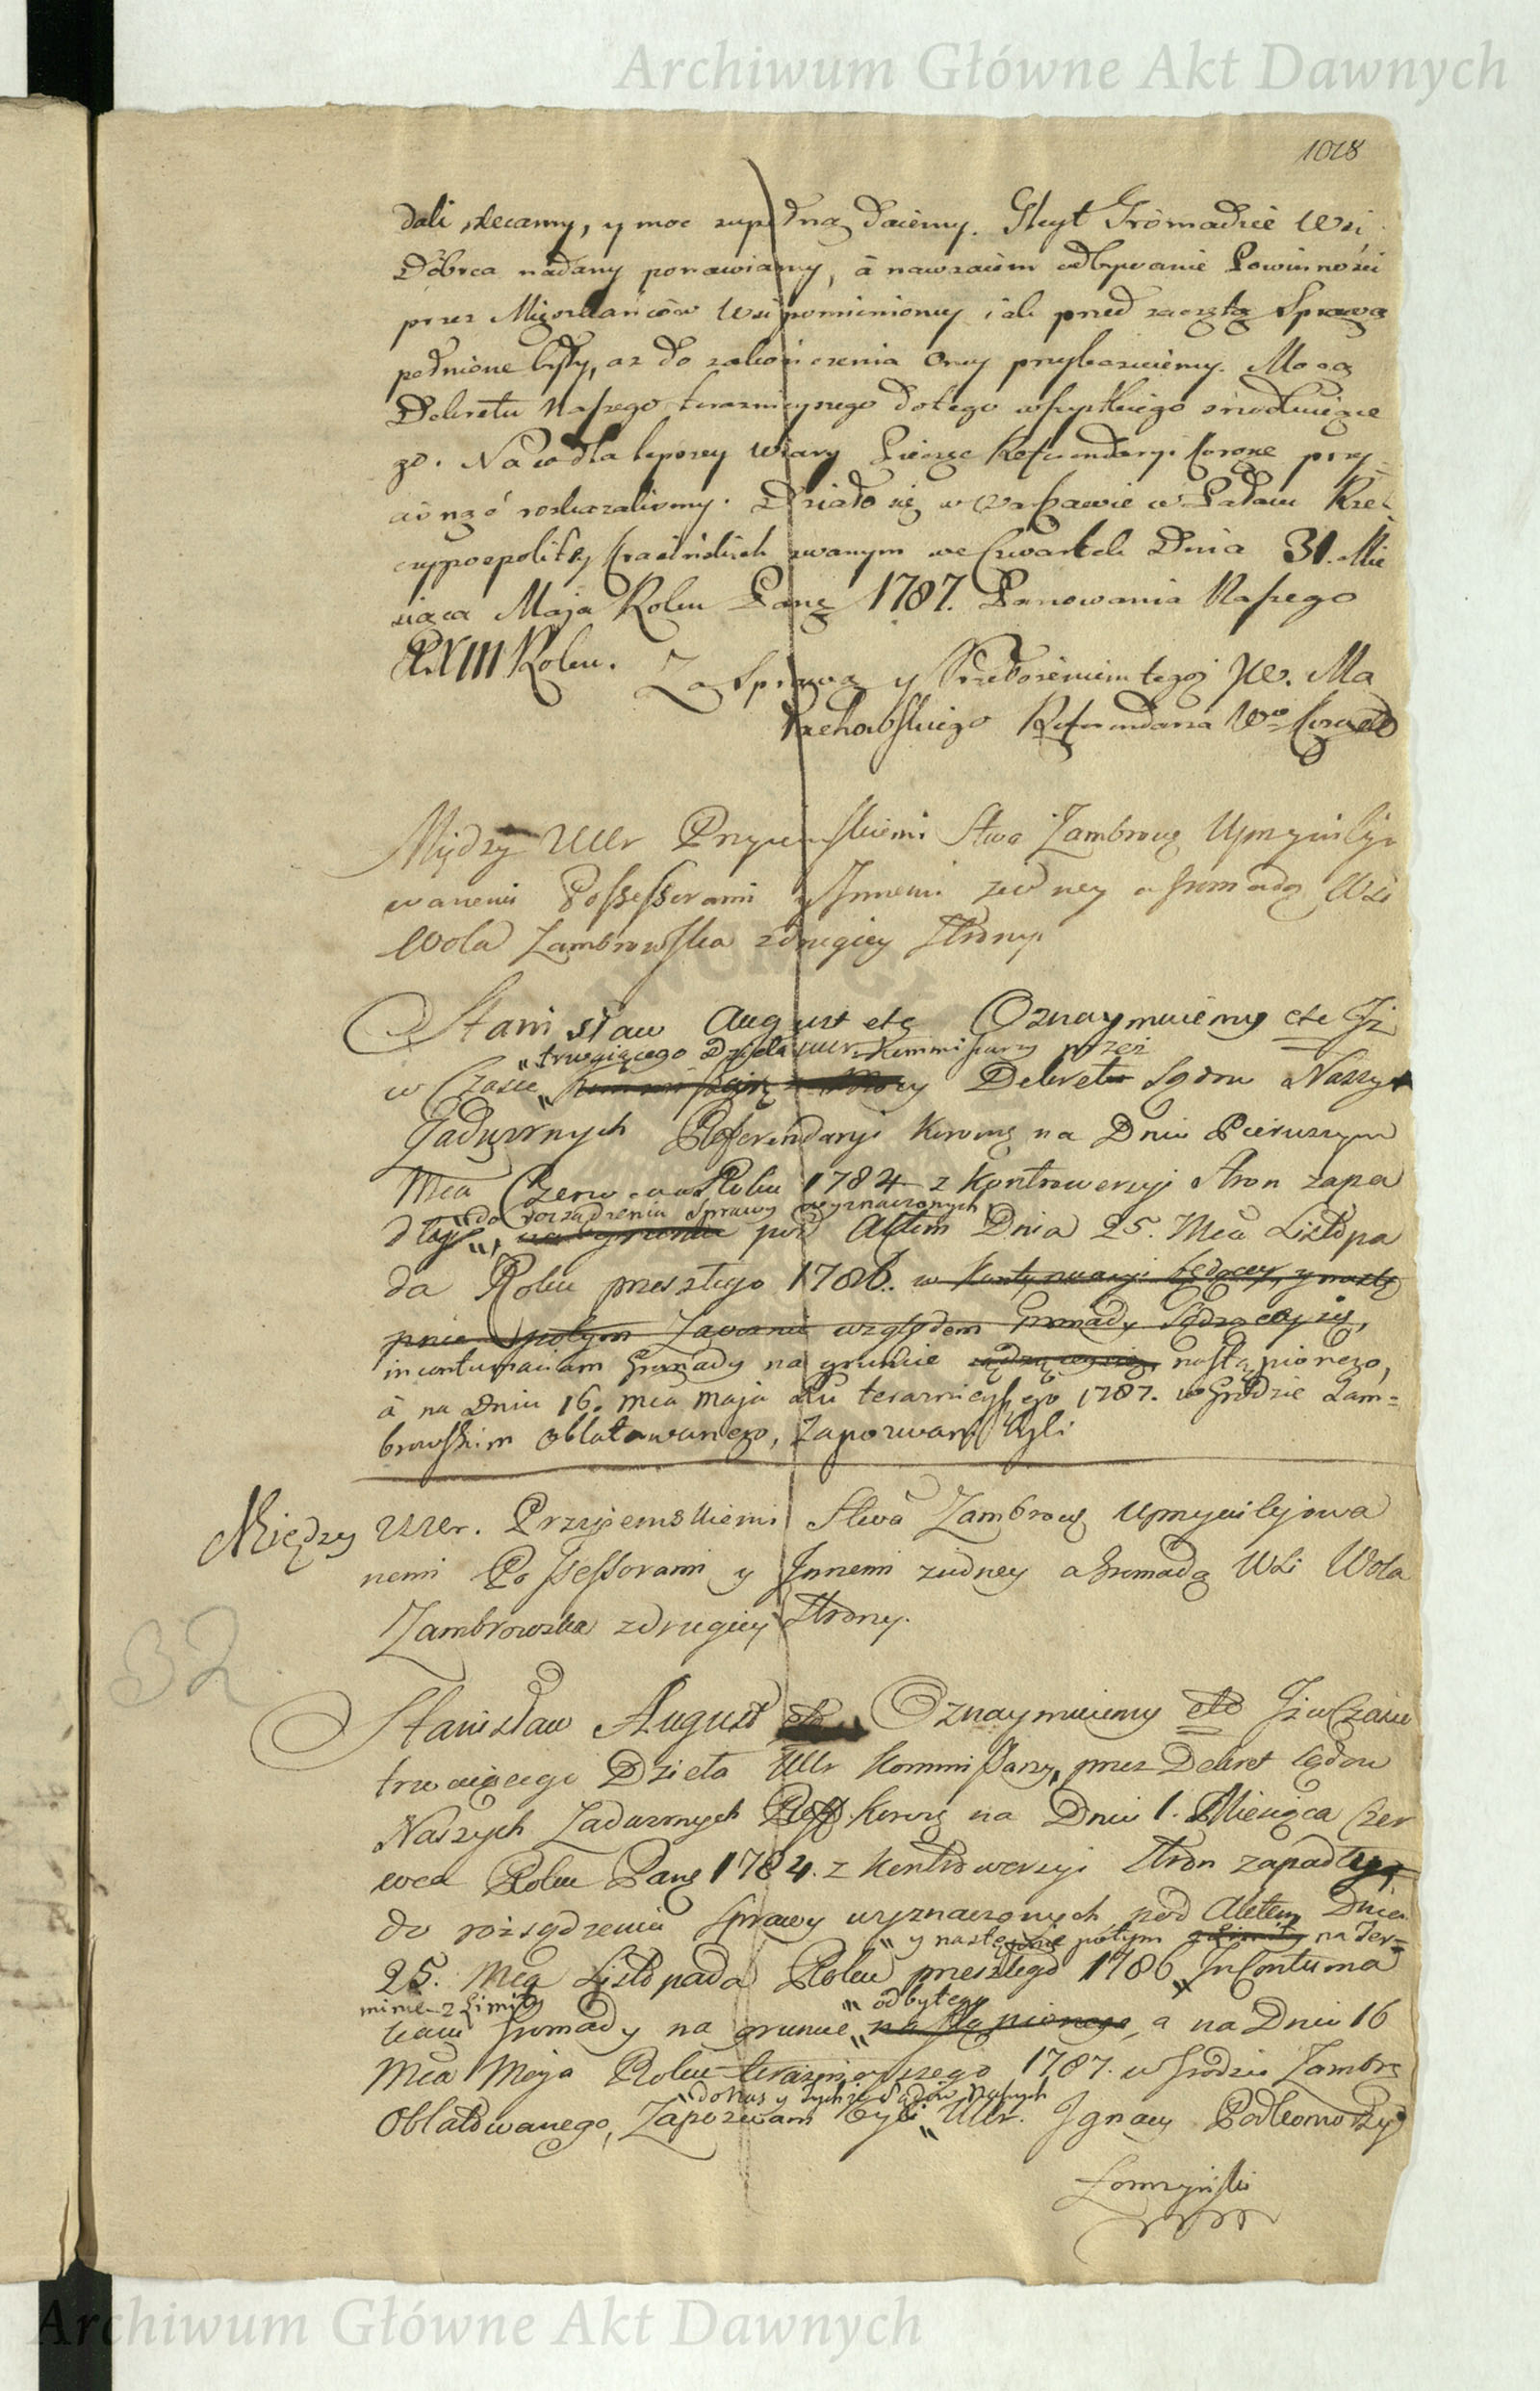 Archiwum Główne Akt Dawnych
1028
dali zlecamy, y moc zupełną daiemy. Gleyt Gromadzie Wsi
Dóbrca nadany ponawiamy, à nawzaiem odbywanie Powinności
przez Mieszkańców Wsi pomienioney iak przed zaczętą Sprawą
pełnione były, aż do zakończenia Oney przykazuiemy. Mocą
Dekretu Naszego teraznieyszego do tego wszystkiego
go. Na co dla lepszey Wiary Pieczęć Referendaryi Koronę przy-
cisnąć roskazalismy. Działo się w Warszawie w Pałacu Rze-
czypospolitey Krasińskich zwanym we Czwartek Dnia 31. Mie
siąca Maja Roku Pang 1787. Panowania Naszego
XXIII Roku. Za Sprawą y Przełożeniem tegoż JW. Ma
łachowskiego Referendarza Wo Koronę
Między Ur Przyiemskiemi Stwa Zambrowg Uprzywilijo
wanemi Possessorami y Innemi zedney a Gromadą Wsi
Wola Zambrowska zdrugiey Strony.
Stanisław August etc Oznaymuiemy etc Iż
„trwaiącego Dzieła Ur Kommissarzy przez
w Czasie Dekret Sądow Naszych
Zadwornych Referendaryi Koronę na Dniu Pierwszym
Mca Czerwca Roku 1784 z Kontrowersyi Stron zapa
„do rozsądzenia Sprawy wyznaczonych
dły „ na gruncie pod Aktem Dnia 25. Mca Listopa
da Roku przeszłego 1786. w Kontynuacyi będącey, y nastę
pnie potym Zaocznie względem Gromady Sądzącey się,
in contumaciam Gromady na gruncie nastąpionego,
à na Dniu 16. mca maja Ru teraznieyszego 1787. w Grodzie Zam=
browskim oblatowanego, Zapozwani byli
Między Ur. Przyiemskiemi Stwa Zambrowg Uprzywilejowa
nemi Possessorami y Innemi zidney a Gromadą Wsi Wola
Zambrowska zdrugiey Strony.
32
Stanisław August etc Oznaymuiemy etc Iż w Czasie
trwaiącego Dzieła Ur Kommissarzy, przez Dekret Sądow
Naszych Zadwornych Reff. Koronę na Dniu 1. Miesiąca Czer
wca Roku Pang 1784. z Kontrowersyi Stron zapadły,
do rozsądzenia Sprawy wyznaczonych pod Aktem Dnia
„y następnie potym na Ter=
25. Mca Listopada Roku przeszłego 1786 In Contuma
minie z Limity „odbytego
ciam Gromady na gruncie „ nastąpionego, a na Dniu 16
Mca Maja Roku teraznieyszego 1787. w Grodzie Zambrg
„do Nas y tychże Sądów Naszych
Oblatowanego, Zapozwani byli „ Ur. Ignacy Podkomorzy
Łomżyński
Archiwum Główne Akt Dawnych